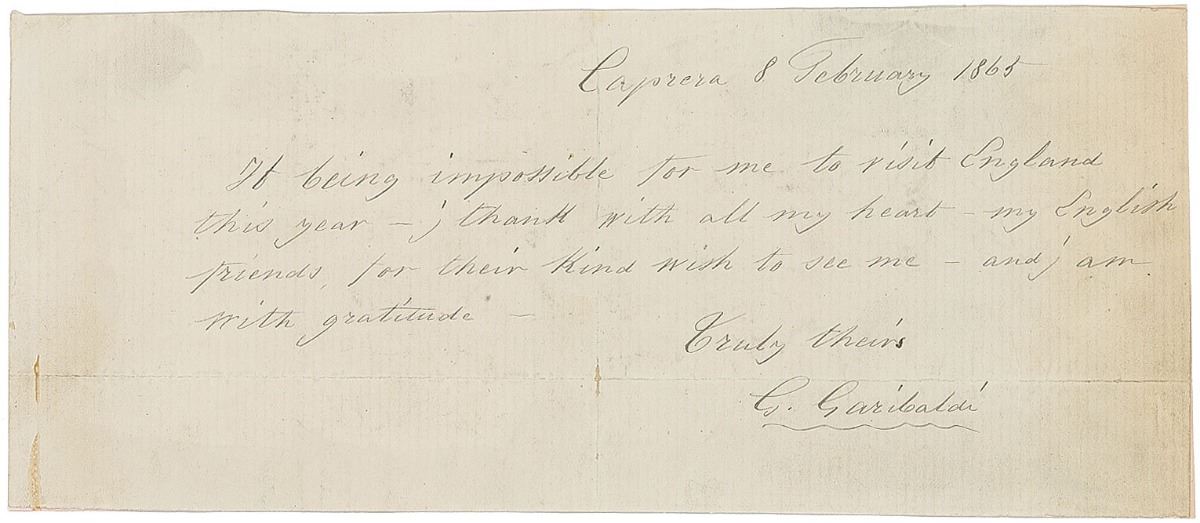 Caprera 8 February 1865
It being impossible for me to visit England
this year – j thank with all my heart – my English
friends, for their kind wish to see me – and j am
with gratitude –
Truly theirs
G. Garibaldi